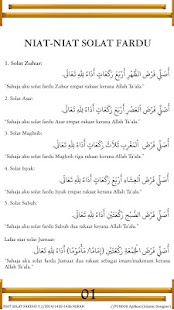 NIAT-NIAT SOLAT FARDU
1. Solat Zuhur:
أُصَلِّي فَرْضَ الظُّهْرِ أَرْبَعَ رَكَعَاتٍ أَدَاءً لِلَّهِ تَعَالَى.
"Sahaja aku solat fardu Zuhur empat rakaat kerana Allah Ta'ala."
2. Solat Asar:
أُصَلِّي فَرْضَ الْعَصْرِ أَرْبَعَ رَكَعَاتٍ أَدَاءً لِلَّهِ تَعَالَى.
"Sahaja aku solat fardu Asar empat rakaat kerana Allah Ta'ala."
3. Solat Maghrib:
أُصَلِّي فَرْضَ الْمَغْرِبِ ثَلَاثَ رَكَعَاتٍ أَدَاءً لِلَّهِ تَعَالَى.
"Sahaja aku solat fardu Maghrib tiga rakaat kerana Allah Ta'ala."
4. Solat Isyak:
أُصَلِّي فَرْضَ الْعِشَاءِ أَرْبَعَ رَكَعَاتٍ أَدَاءً لِلَّهِ تَعَالَى.
"Sahaja aku solat fardu Isyak empat rakaat kerana Allah Ta'ala."
5. Solat Subuh:
أُصَلِّي فَرْضَ الصُّبْحِ رَكْعَتَيْنِ أَدَاءً لِلَّهِ تَعَالَى.
"Sahaja aku solat fardu Subuh dua rakaat kerana Allah Ta'ala."
Lafaz niat solat Jumaat:
أُصَلِّي فَرْضَ الْجُمُعَةِ رَكْعَتَيْنِ (إِمَامًا/مَأْمُومًا) أَدَاءً لِلَّهِ تَعَالَى.
"Sahaja aku solat fardu Jumaat dua rakaat sebagai imam/makmum kerana Allah Ta'ala."
01
NIAT SOLAT FARDHU